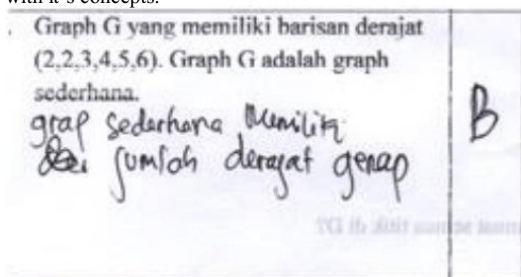 with it's concepts.
. Graph G yang memiliki barisan derajat
(2,2,3,4,5,6). Graph G adalah graph
sederhana.
grap sederhana Memiliki
jumlah derajat genap
B